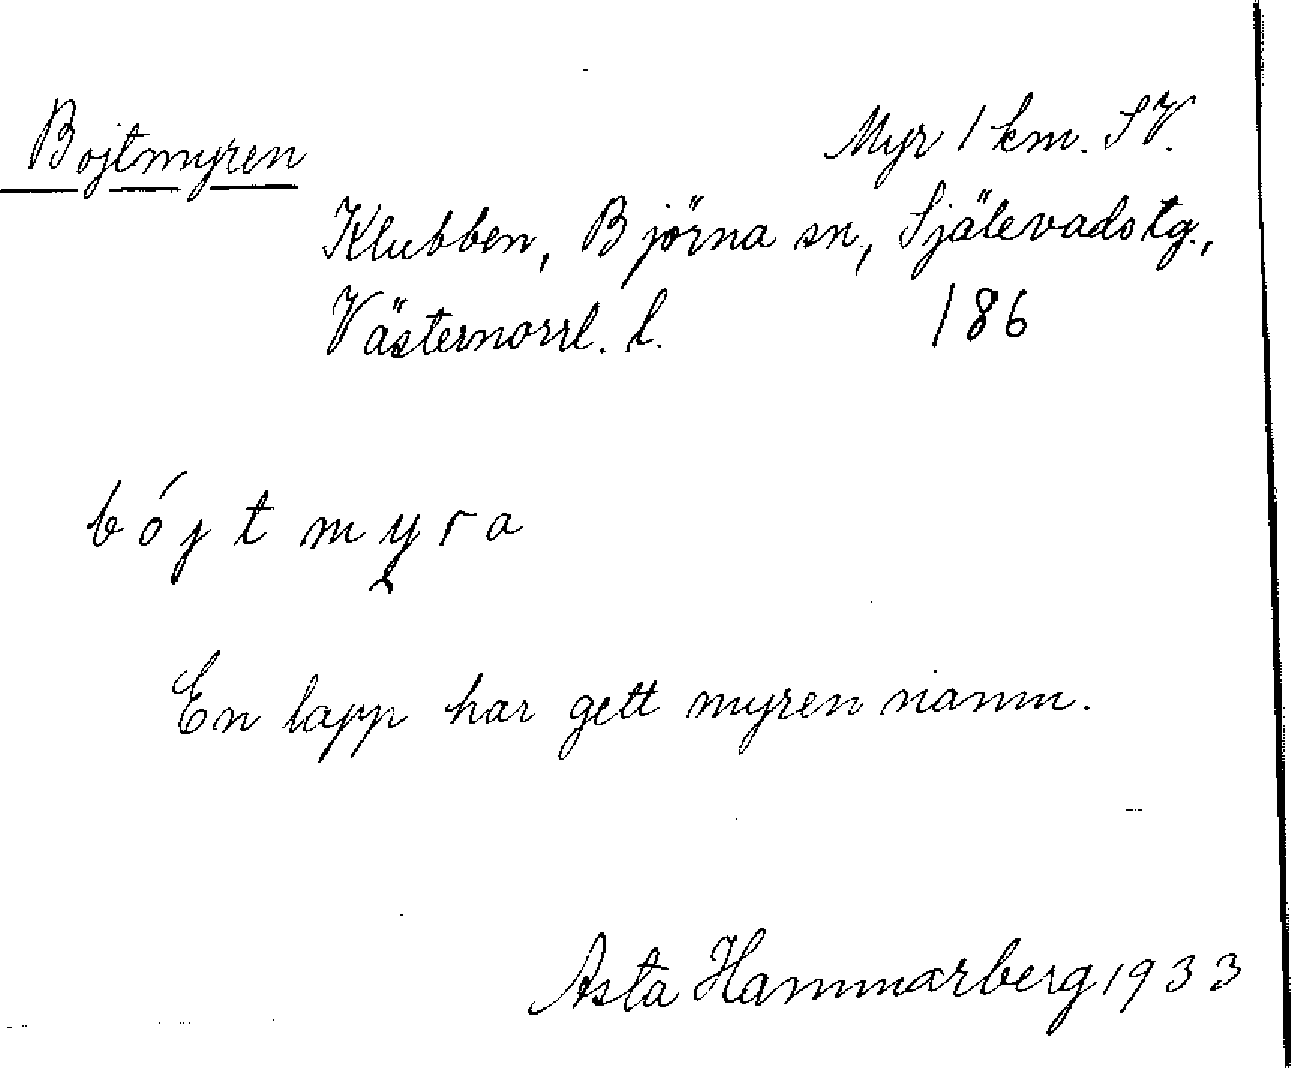 Bojtmyren
Myr 1 km. SV.
Klubben, Björna sn, Själevads tg.,
Västernorrl. l.
186
bójt myra
En lapp har gett myren namn.
Asta Hammarberg 1933